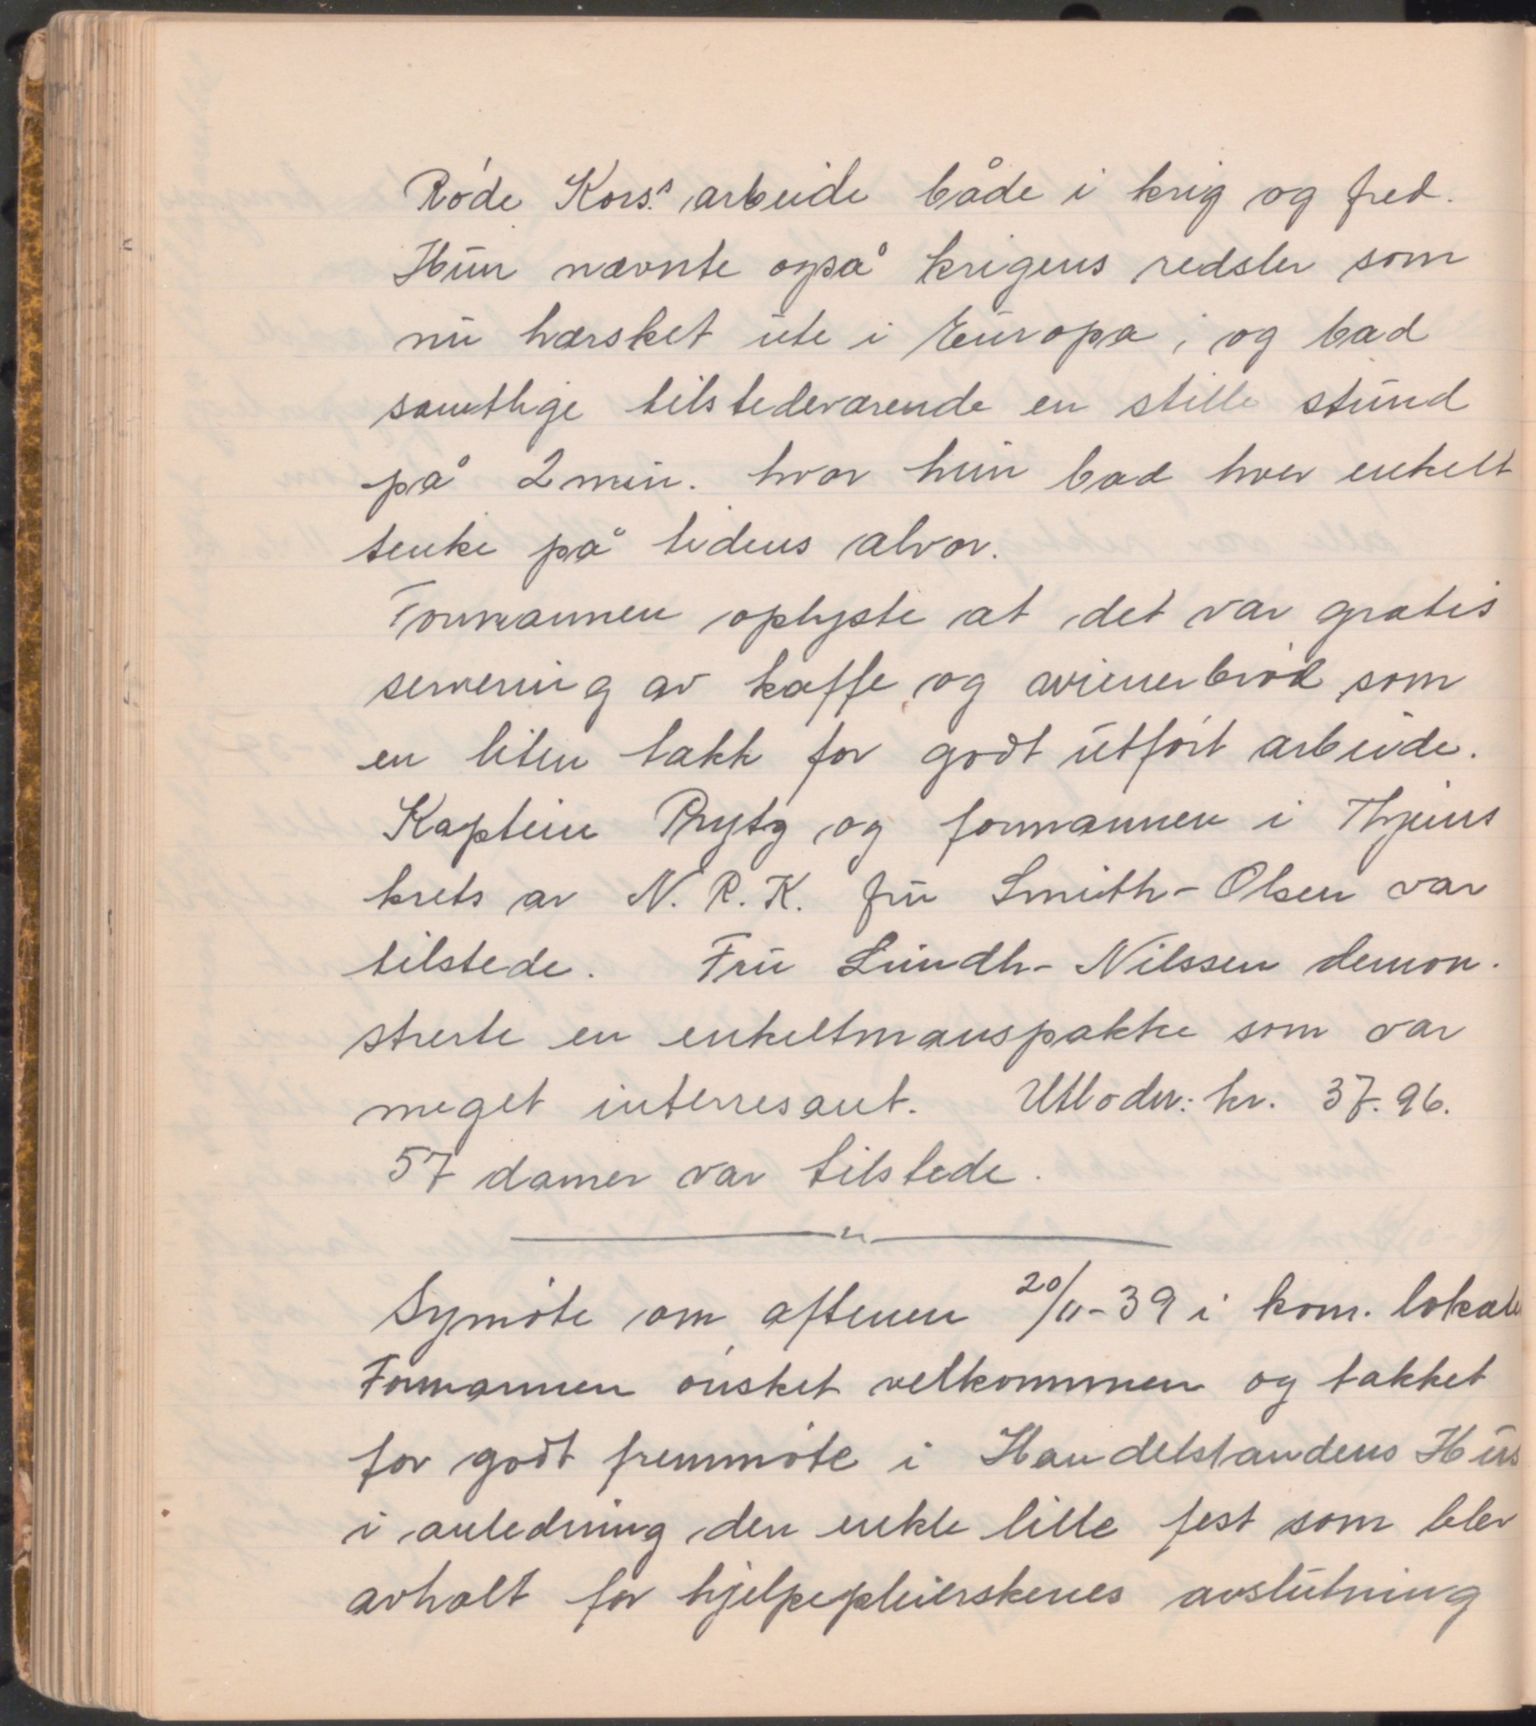 Røde Kors's arbeide både i krig og fred.
Hun nævnte også krigens redsler som
nu hærsket ute i Europa, og bad
samtlige tilstedeværende en stille stund
på 2 min. hvor hun bad hver enkelt
tenke på tidens alvor.
Formannen oplyste at det var gratis
servering av kaffe og wienerbrød som
en liten takk for godt utført arbeide.
Kaptein Prytz og formannen i Thjems
krets av N. R. K. fru Smith-Olsen var
tilstede. Fru Lundh-Nilssen demon-
strerte en enkeltmanspakke som var
meget interresant. Utlodn: kr. 37.96.
57 damer var tilstede.
Symøte om aftenen 20/11-39 i kom. lokale
Formannen ønsket velkommen og takket
for godt fremmøte i Handelstandens Hus
i anledning den enkle lille fest som blev
avholt for hjelpepleierskenes avslutning